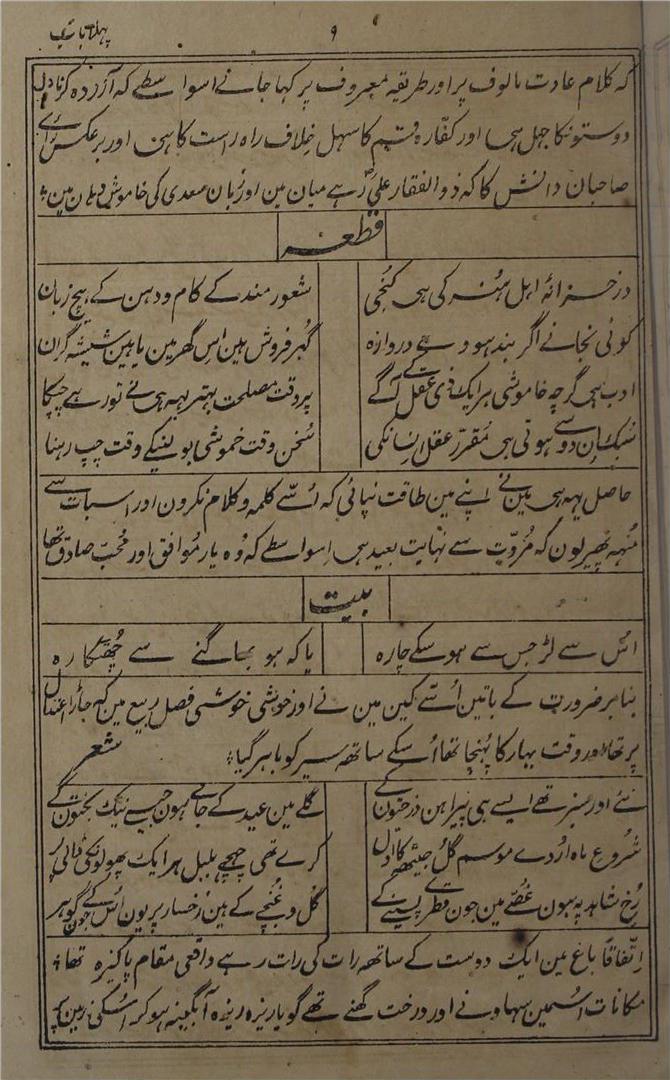 پہلا باب
۹
کہ کلام عادت مالوف پر اور طریقہ معروف پر کہا جائے اسواسطے کہ آزردہ کرنا دل
دوستونکا جہل ہی اور کفارہ قسم کا سہل خلاف راہ راست کا ہی اور برعکس رائے
صاحبان دانش کا کہ ذوالفقار علی رہے میان مین اور زبان سعدی کی خاموش دہان مین
قطعہ
در خزانۂ اہل ہنر کی ہی کنجی شعور مند کے کام و دہن کے بیچ زبان
کوئی نجانے اگر بند ہووے دروازہ گہر فروش ہین اس گھر مین یا ہین شیشہ گران
ادب ہی گرچہ خاموشی ہر ایک ذی عقل کے آگے پر وقت مصلحت بہتر یہہ ہی نے تو رہے چپکا
سبک ان دو سے ہوتی ہی مقرر عقل انسانکی سخن وقت خموشی بولنیکے وقت چپ رہنا
حاصل یہہ ہی مین نے اپنے مین طاقت نپائی کہ اسّے کلمہ و کلام نکرون اور اسبات سے
منہہ پھیر لون کہ مروّت سے نہایت بعید ہی اسواسطے کہ وہ یار موافق اور محب صادق تھا
بیت
اس سے لڑ جس سے ہوسکے چارہ یا کہ ہو بھاگنے سے چھٹکارہ
بنابر ضرورت کے باتین اسّے کین مین نے اور خوشی خوشی فصل ربیع مین کہ جاڑا اعتدال
پر تھا اور وقت بہار کا پہنچا تھا اسکے ساتھہ سیر کو باہر گیا
شعر
نئے اور سبز تھے ایسے ہی پیراہن درختون کے گلے مین عید کے جامے ہون جیسے نیک بختون کے
شروع ماہ اردے موسم گل جیٹھہ کا اول کرے تھی چہچہے بلبل ہر ایک پھولونکی ڈالی پر
رخ شاہد پہ ہون غصے مین جون قطرے پسینے کے گل و غنچے کے ہین رخسار پر یون اوس کے گوہر
اتفاقاً باغ مین ایک دوست کے ساتھہ رات کی رات رہے واقعی مقام پاکیزہ تھا
مکانات اسمین سہاونے اور درخت گھنے تھے گویا ریزہ ریزہ آبگینہ ہوکر اسکی زمین پر